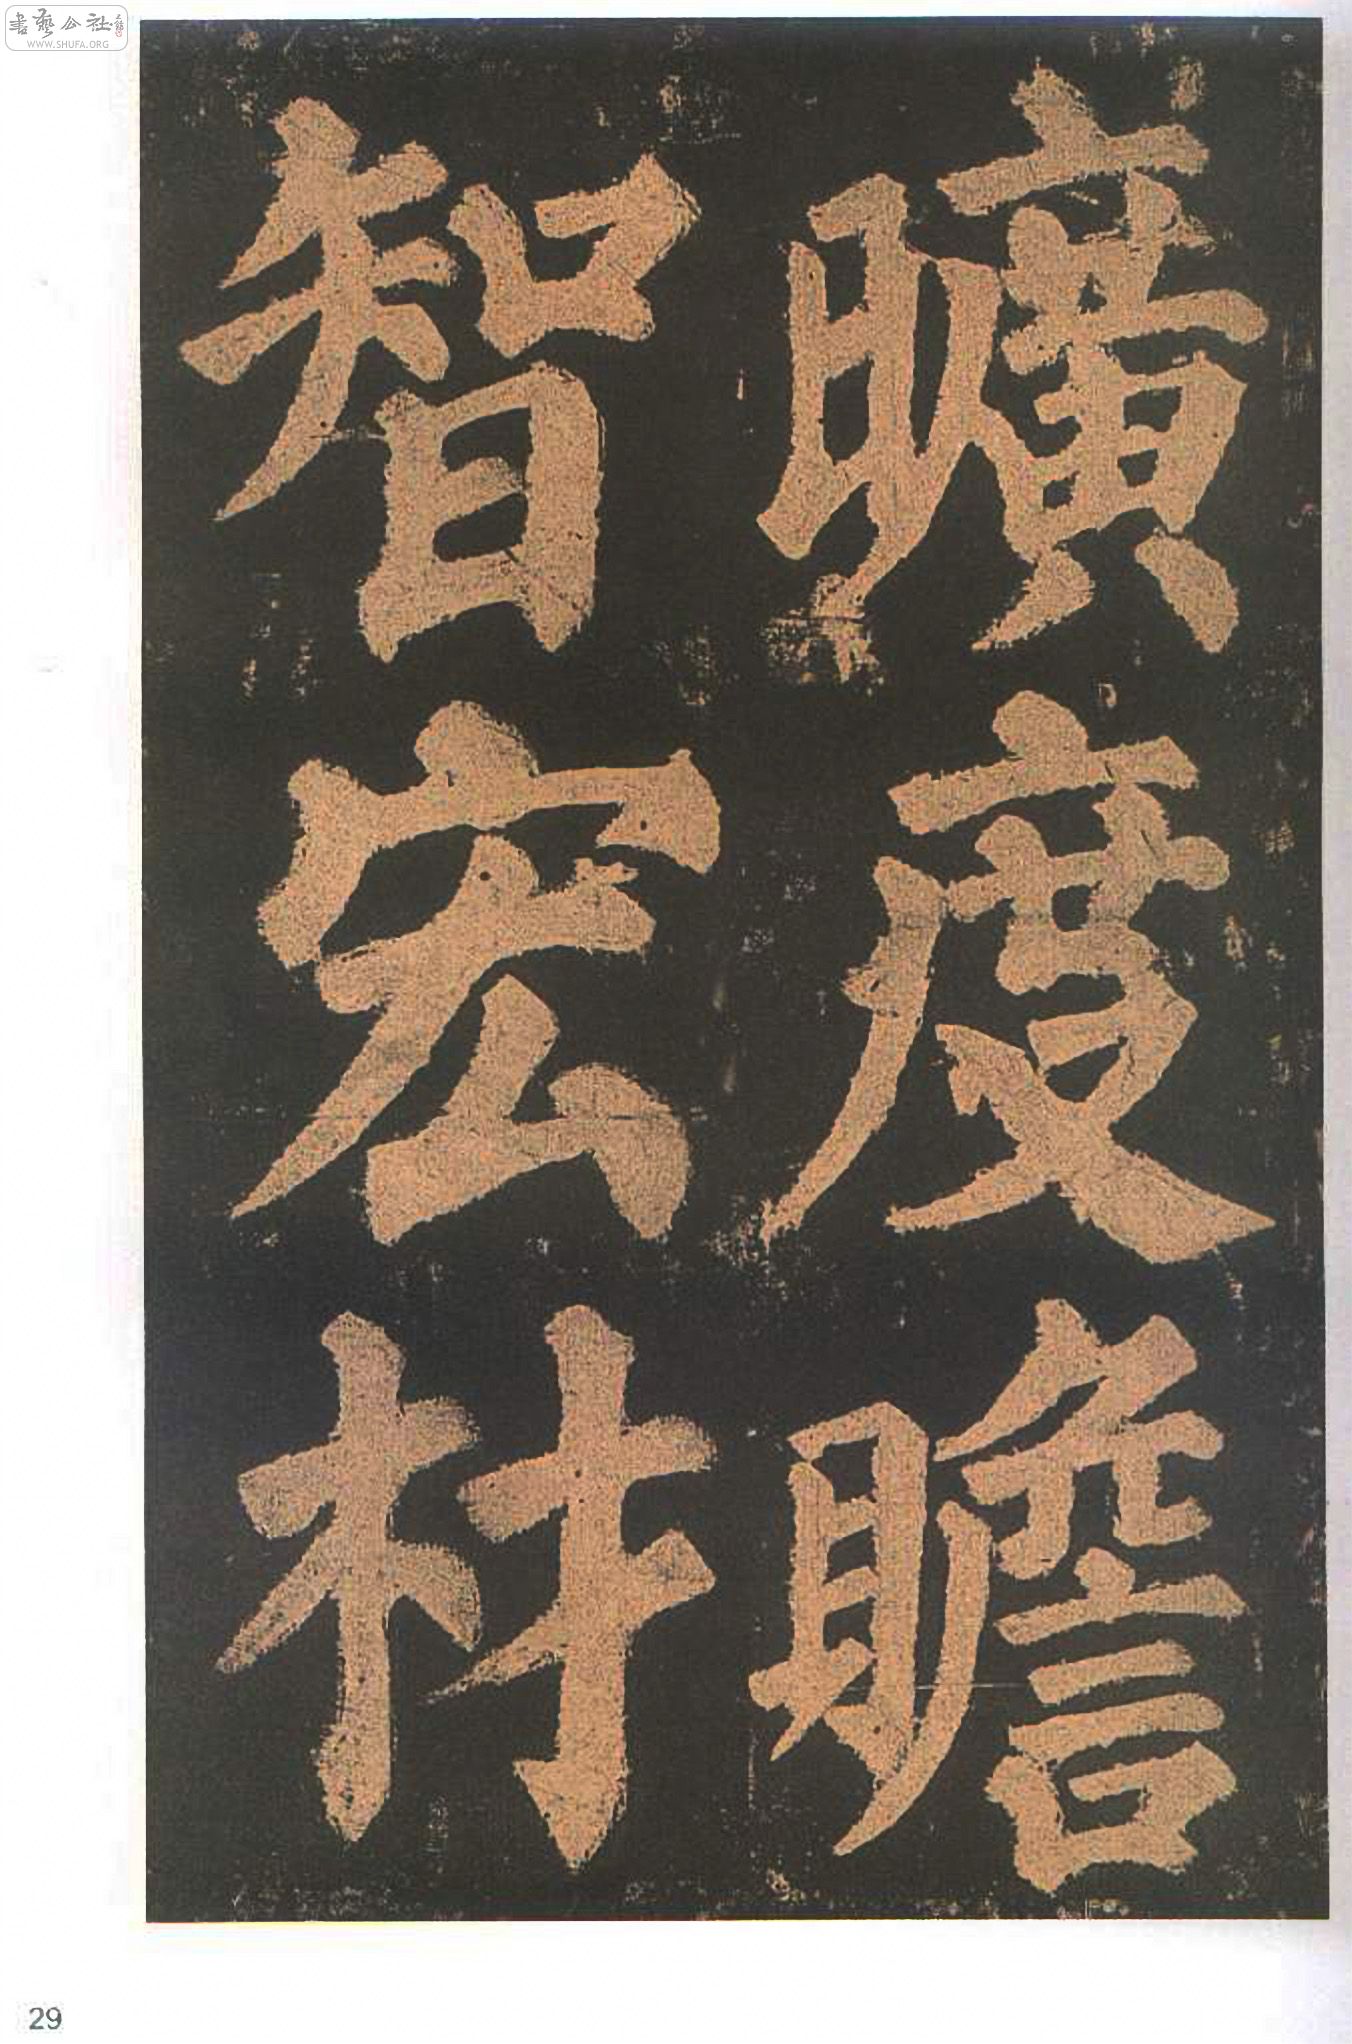 書藝公社
WWW.SHUFA.ORG
曠度瞻
智宏材
29